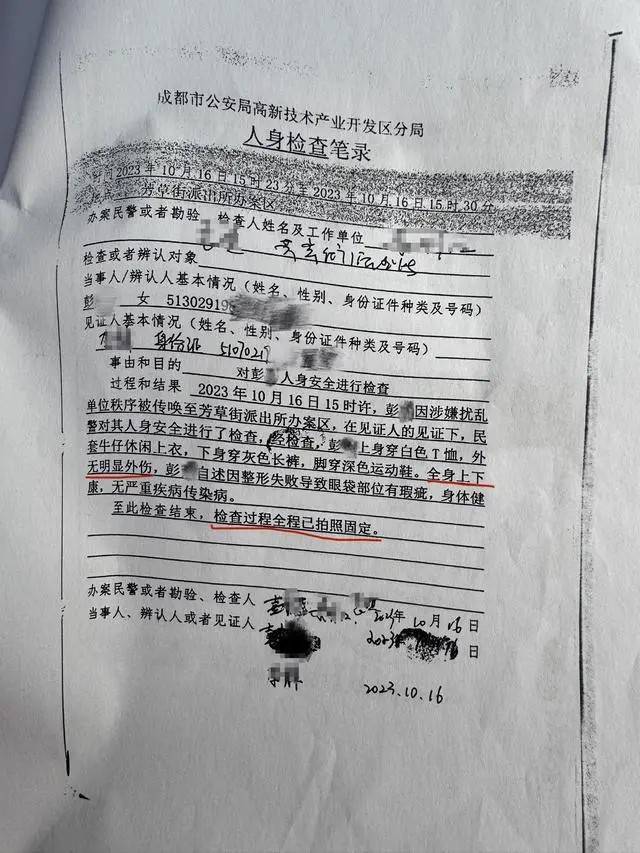 成都市公安局高新技术产业开发区分局
人身检查笔录
时间2023年10月16日15时23分至2023年10月16日15时30分
地点芳草街派出所办案区
办案民警或者勘验、检查人姓名及工作单位
检查或者辨认对象
当事人/辨认人基本情况（姓名、性别、身份证件种类及号码）
彭 女 51302919
见证人基本情况（姓名、性别、身份证件种类及号码）
身份证 51070219
事由和目的 对彭 人身安全进行检查
过程和结果 2023年10月16日15时许，彭 因涉嫌扰乱
单位秩序被传唤至芳草街派出所办案区，在见证人的见证下，民
警对其人身安全进行了检查，经检查，彭 上身穿白色T恤，外
套牛仔休闲上衣，下身穿灰色长裤，脚穿深色运动鞋。全身上下
无明显外伤，彭 自述因整形失败导致眼袋部位有瑕疵，身体健
康，无严重疾病传染病。
至此检查结束，检查过程全程已拍照固定。
办案民警或者勘验、检查人 年10月16日
当事人、辨认人或者见证人 2023 16日
2023.10.16